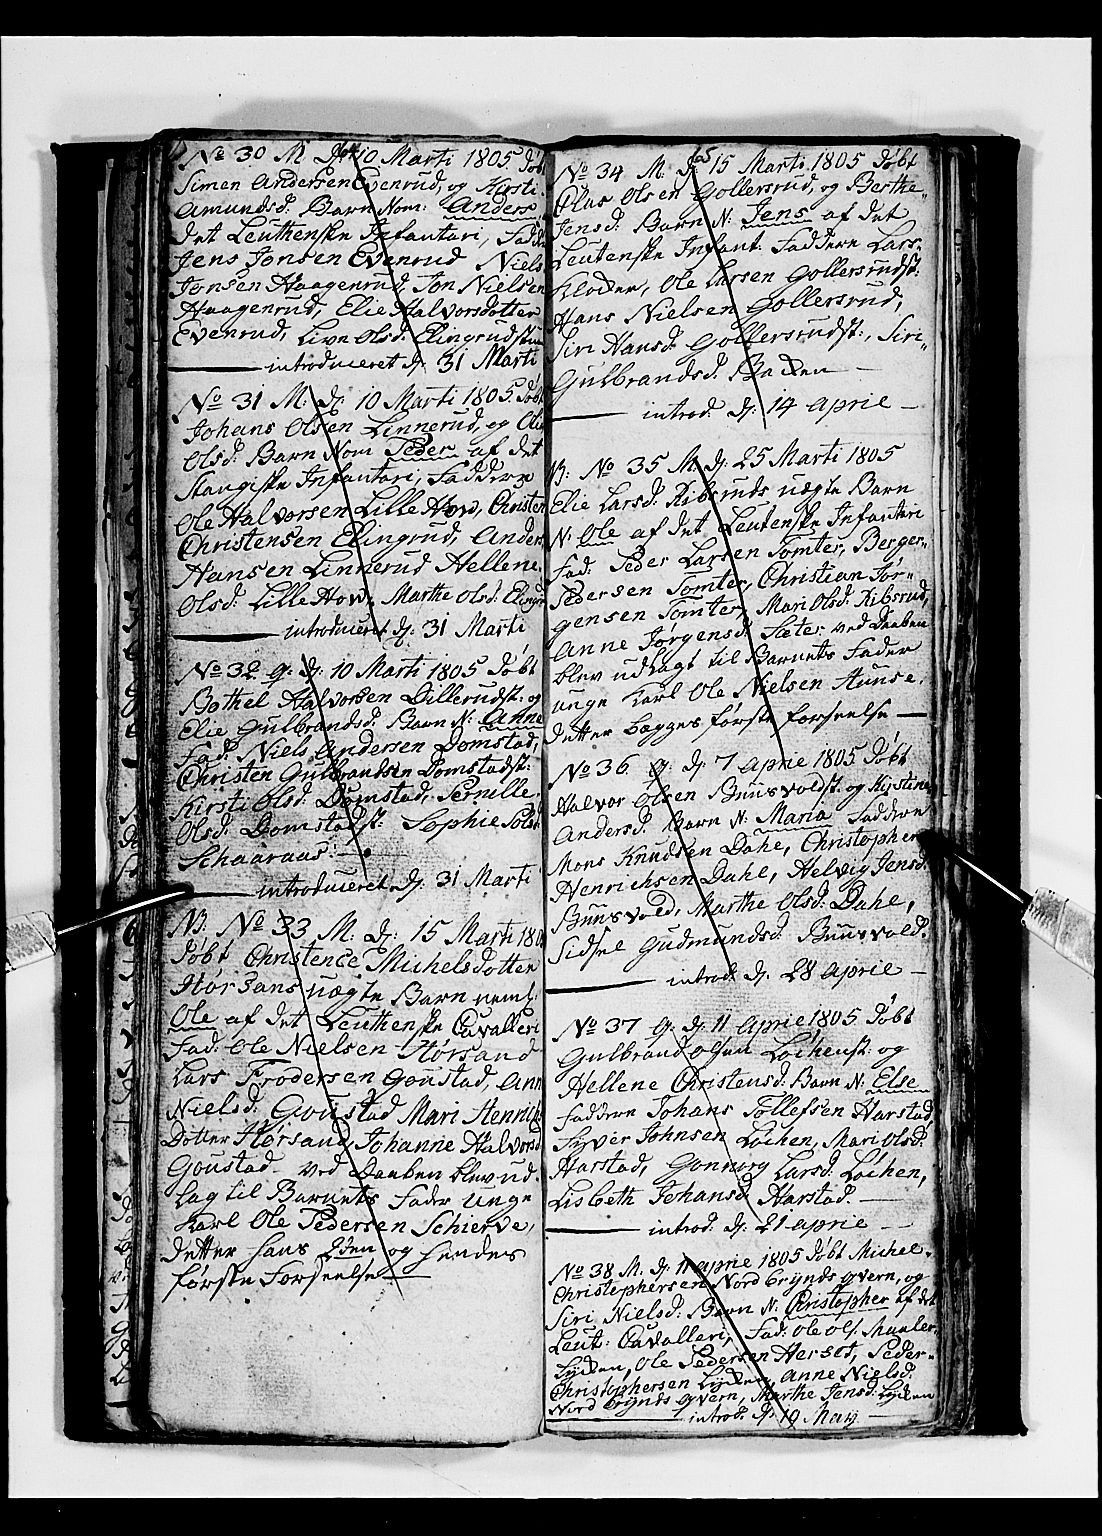 No 30 M. d. 10 Marti 1805 døbt
Simen Andersen Evenrud, og Kirsti
Amundsd. Barn Nom: Anders
det Leuthenske Infantari, Fadd
Jens Jonsen Evenrud Niels
Jonsen Haagenrud, Jon Nielsen
Haagenrud, Elie Halvorsdotter
Evenrud, Live Olsd: Elingrudst
introduceret d. 31 Marti
No 31 M: d. 10 Marti 1805 døbt
Johans Olsen Linnerud, og Olia
Olsd: Barn Nom Peder af det
Stangiske Infantari, Faddere
Ole Halvorsen Lille Hov, Christen
Christensen Elingrud, Anders
Hansen Linnerud Hellene
Olsd: Lille Hov, Marthe Olsd: Elingr
introduceret d. 31 Marti
No 32 q. d. 10 Marti 1805 døbt
Bothel Halvorsen Dillerudst: og
Elie Gulbrandsd: Barn N: Anne
Fad: Niels Andersen Domstad,
Christen Gulbrandsen Domstadst:
Kirsti Olsd: Domstad, Pernille
Olsd: Domstadst: Sophie Pols
Schaaraas:
introduceret d. 31 Marti
NB. No 33 M: d: 15 Marti 180
døbt Christence Michelsdotter
Hørsans uægte Barn neml:
Ole af det Leuthenske Cavalleri
Fad: Ole Nielsen Hørsand
Lars Frodersen Goustad, Ann
Nielsd: Goustad Mari Henrich
Dotter Hørsand, Johanne Halvorsd
Goustad - ved Daaben blev ud-
lag til Barnets Fader unge
Karl Ole Pedersen Schierve,
detter hans 2den og hendes
første Forseelse
No 34 M. d. 15 Marti 1805 døbt
Olus Olsen Gollersrud, og Berthe
Jensd: Barn N: Jens af det
Leutenske Infant: Faddere Lars
Kloden, Ole Larsen Gollersrudst:
Hans Nielsen Gollersrud,
Siri Hansd: Gollersrudst:, Siri
Gulbrandsd. Backen
introd. d. 14 aprie
NB: No 35 M. d: 25 Marti 1805
Elie Larsd: Ribsruds uægte Barn
N: Ole af det Leutenske Infanteri
Fad: Peder Larsen Tomter, Berger
Pedersen Tomter, Christian Jør-
gensen Tomter, Mari Olsd: Ribsrud,
Anne Jørgensd. Sæter ved Daaben
blev udlagt til Barnets Fader
unge Karl Ole Nielsen Aunse,
detter bægges første forseelse
No 36 q. d. 7 aprie 1805 døbt
Halvor Olsen Buusvoldst. og Kirstine
Andersd. Barn N. Maria Faddere
Mons Knudsen Dahe, Christopher
Henrichsen Dahl, Helvig Jensd.
Buusvold, Marthe Olsd: Dahe,
Sidsel Gudmundsd Buusvold
introd. d. 28 aprie
No 37 q. d. 11 aprie 1805 døbt
Gulbrand Olsen Lochenst. og
Hellene Christensd: Barn N: Else
Faddere Johans Tollefsen Harstad
Syver Johnsen Lochen, Mari Olsd:
Harstad, Gonnorg Larsd. Lochen,
Lisbeth Johansd Harstad.
introd. d. 21 aprie
No 38 M. d. 11 aprie 1805 døbt Michel
Christophersen Nord Grynds qvern, og
Siri Nielsd. Barn N: Christopher af det
Leut: Cavalleri, Fad: Ole Ols. Maaler
Lycken, Ole Pedersen Herset, Peder
Christophersen Lycken, Anne Nielsd:
Nord Grynds qvern, Marthe Jensd: Lycken
introd. d. 19 May